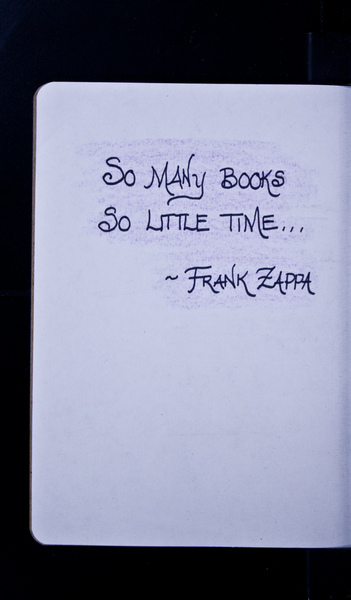 So MANy BOOKS
So LITTLE TIME...
~ FRANK ZAPPA